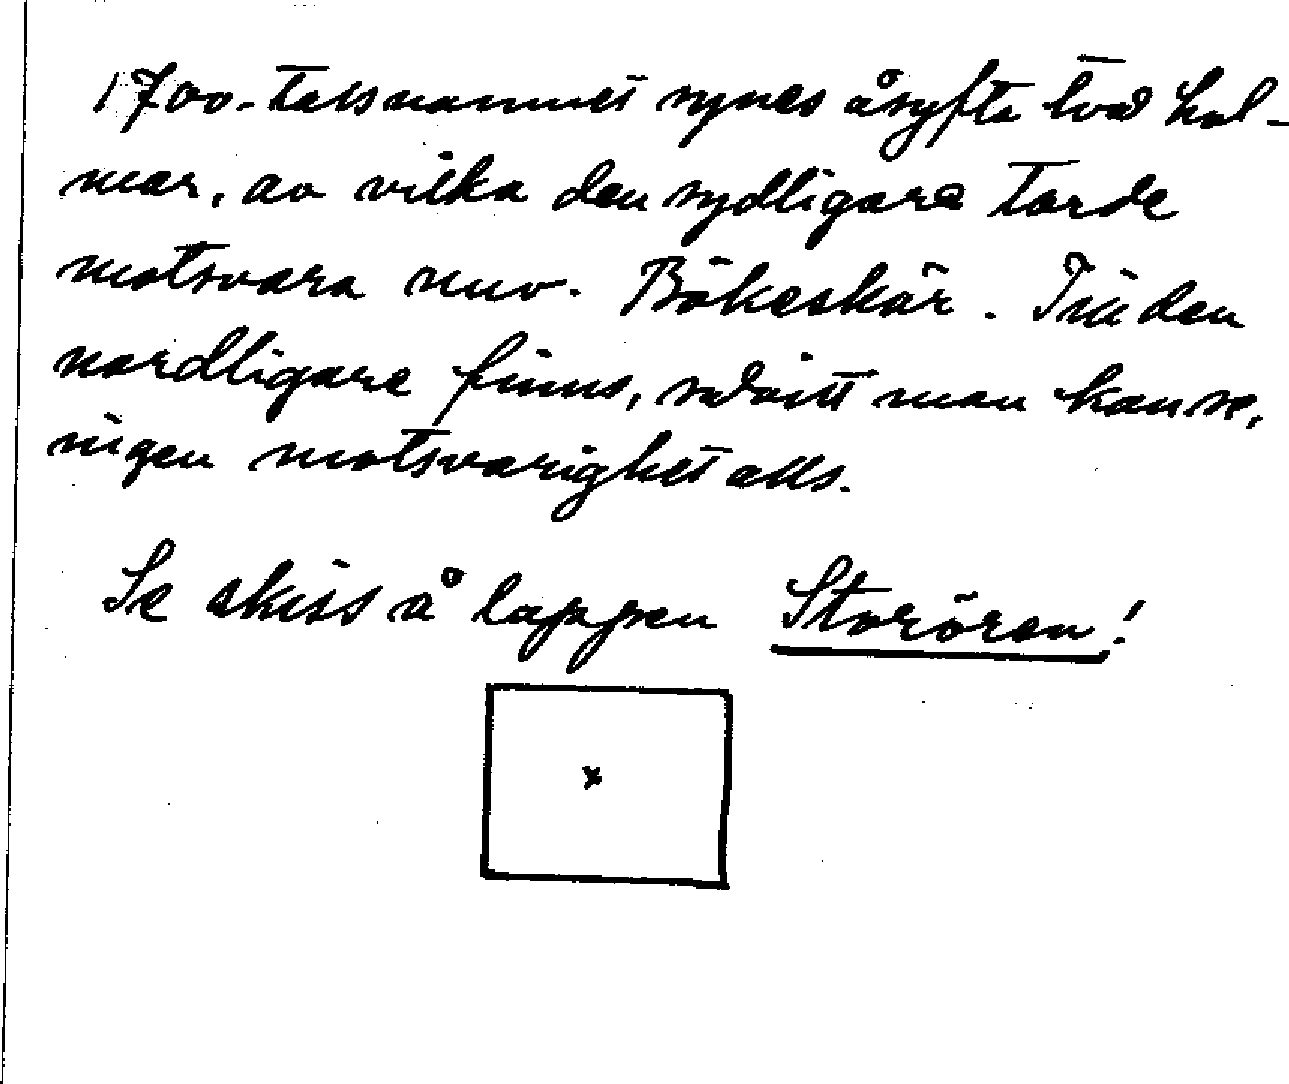 1700-talsnamnet synes åsyfta två hol-
mar, av vilka den sydligare torde
motsvara nuv. Bökeskär. Till den
nordligare finns, såvitt man kan se,
ingen motsvarighet alls.
Se skiss å lappen Storören!
x